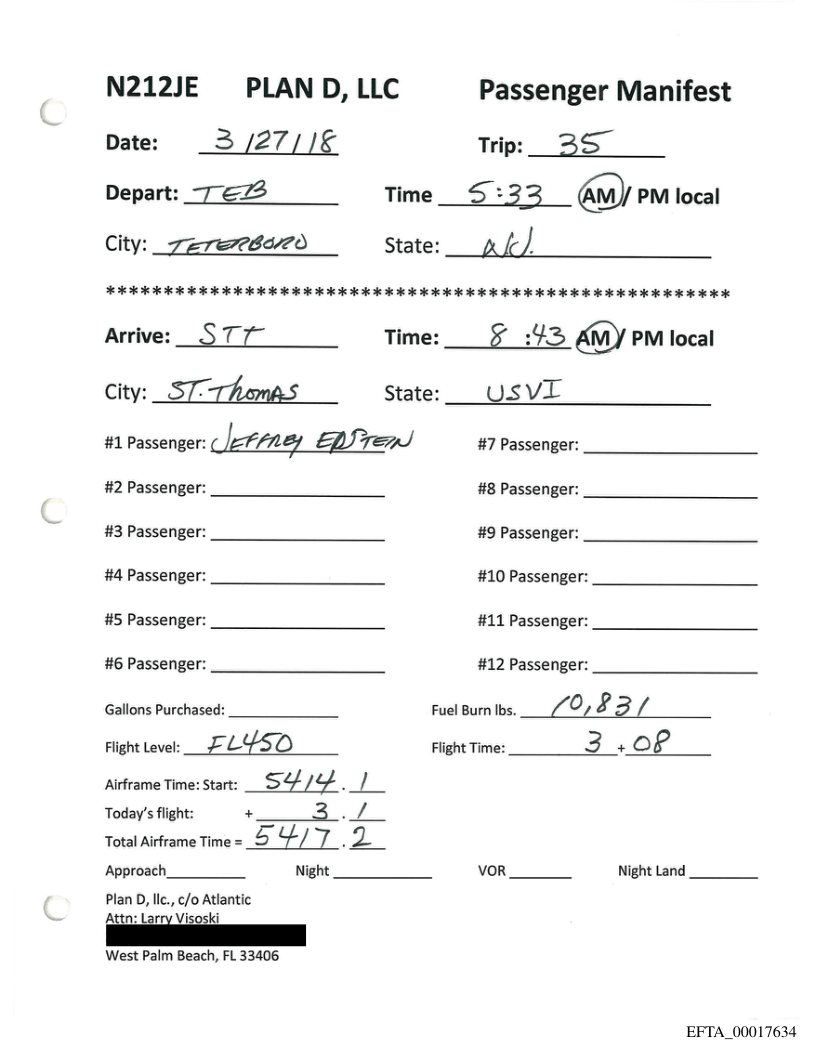 N212JE PLAN D, LLC Passenger Manifest
Date: 3/27/18 Trip: 35
Depart: TEB Time 5:33 AM/ PM local
City: TETERBORO State: N.J.
******************************************************
Arrive: STT Time: 8:43 AM/ PM local
City: ST. Thomas State: USVI
#1 Passenger: JEFFREY EPSTEIN #7 Passenger:
#2 Passenger: #8 Passenger:
#3 Passenger: #9 Passenger:
#4 Passenger: #10 Passenger:
#5 Passenger: #11 Passenger:
#6 Passenger: #12 Passenger:
Gallons Purchased: Fuel Burn lbs. 10,831
Flight Level: FL450 Flight Time: 3 + 08
Airframe Time: Start: 5414.1
Today's flight: + 3.1
Total Airframe Time = 5417.2
Approach Night VOR Night Land
Plan D, llc., c/o Atlantic
Attn: Larry Visoski
West Palm Beach, FL 33406
EFTA_00017634